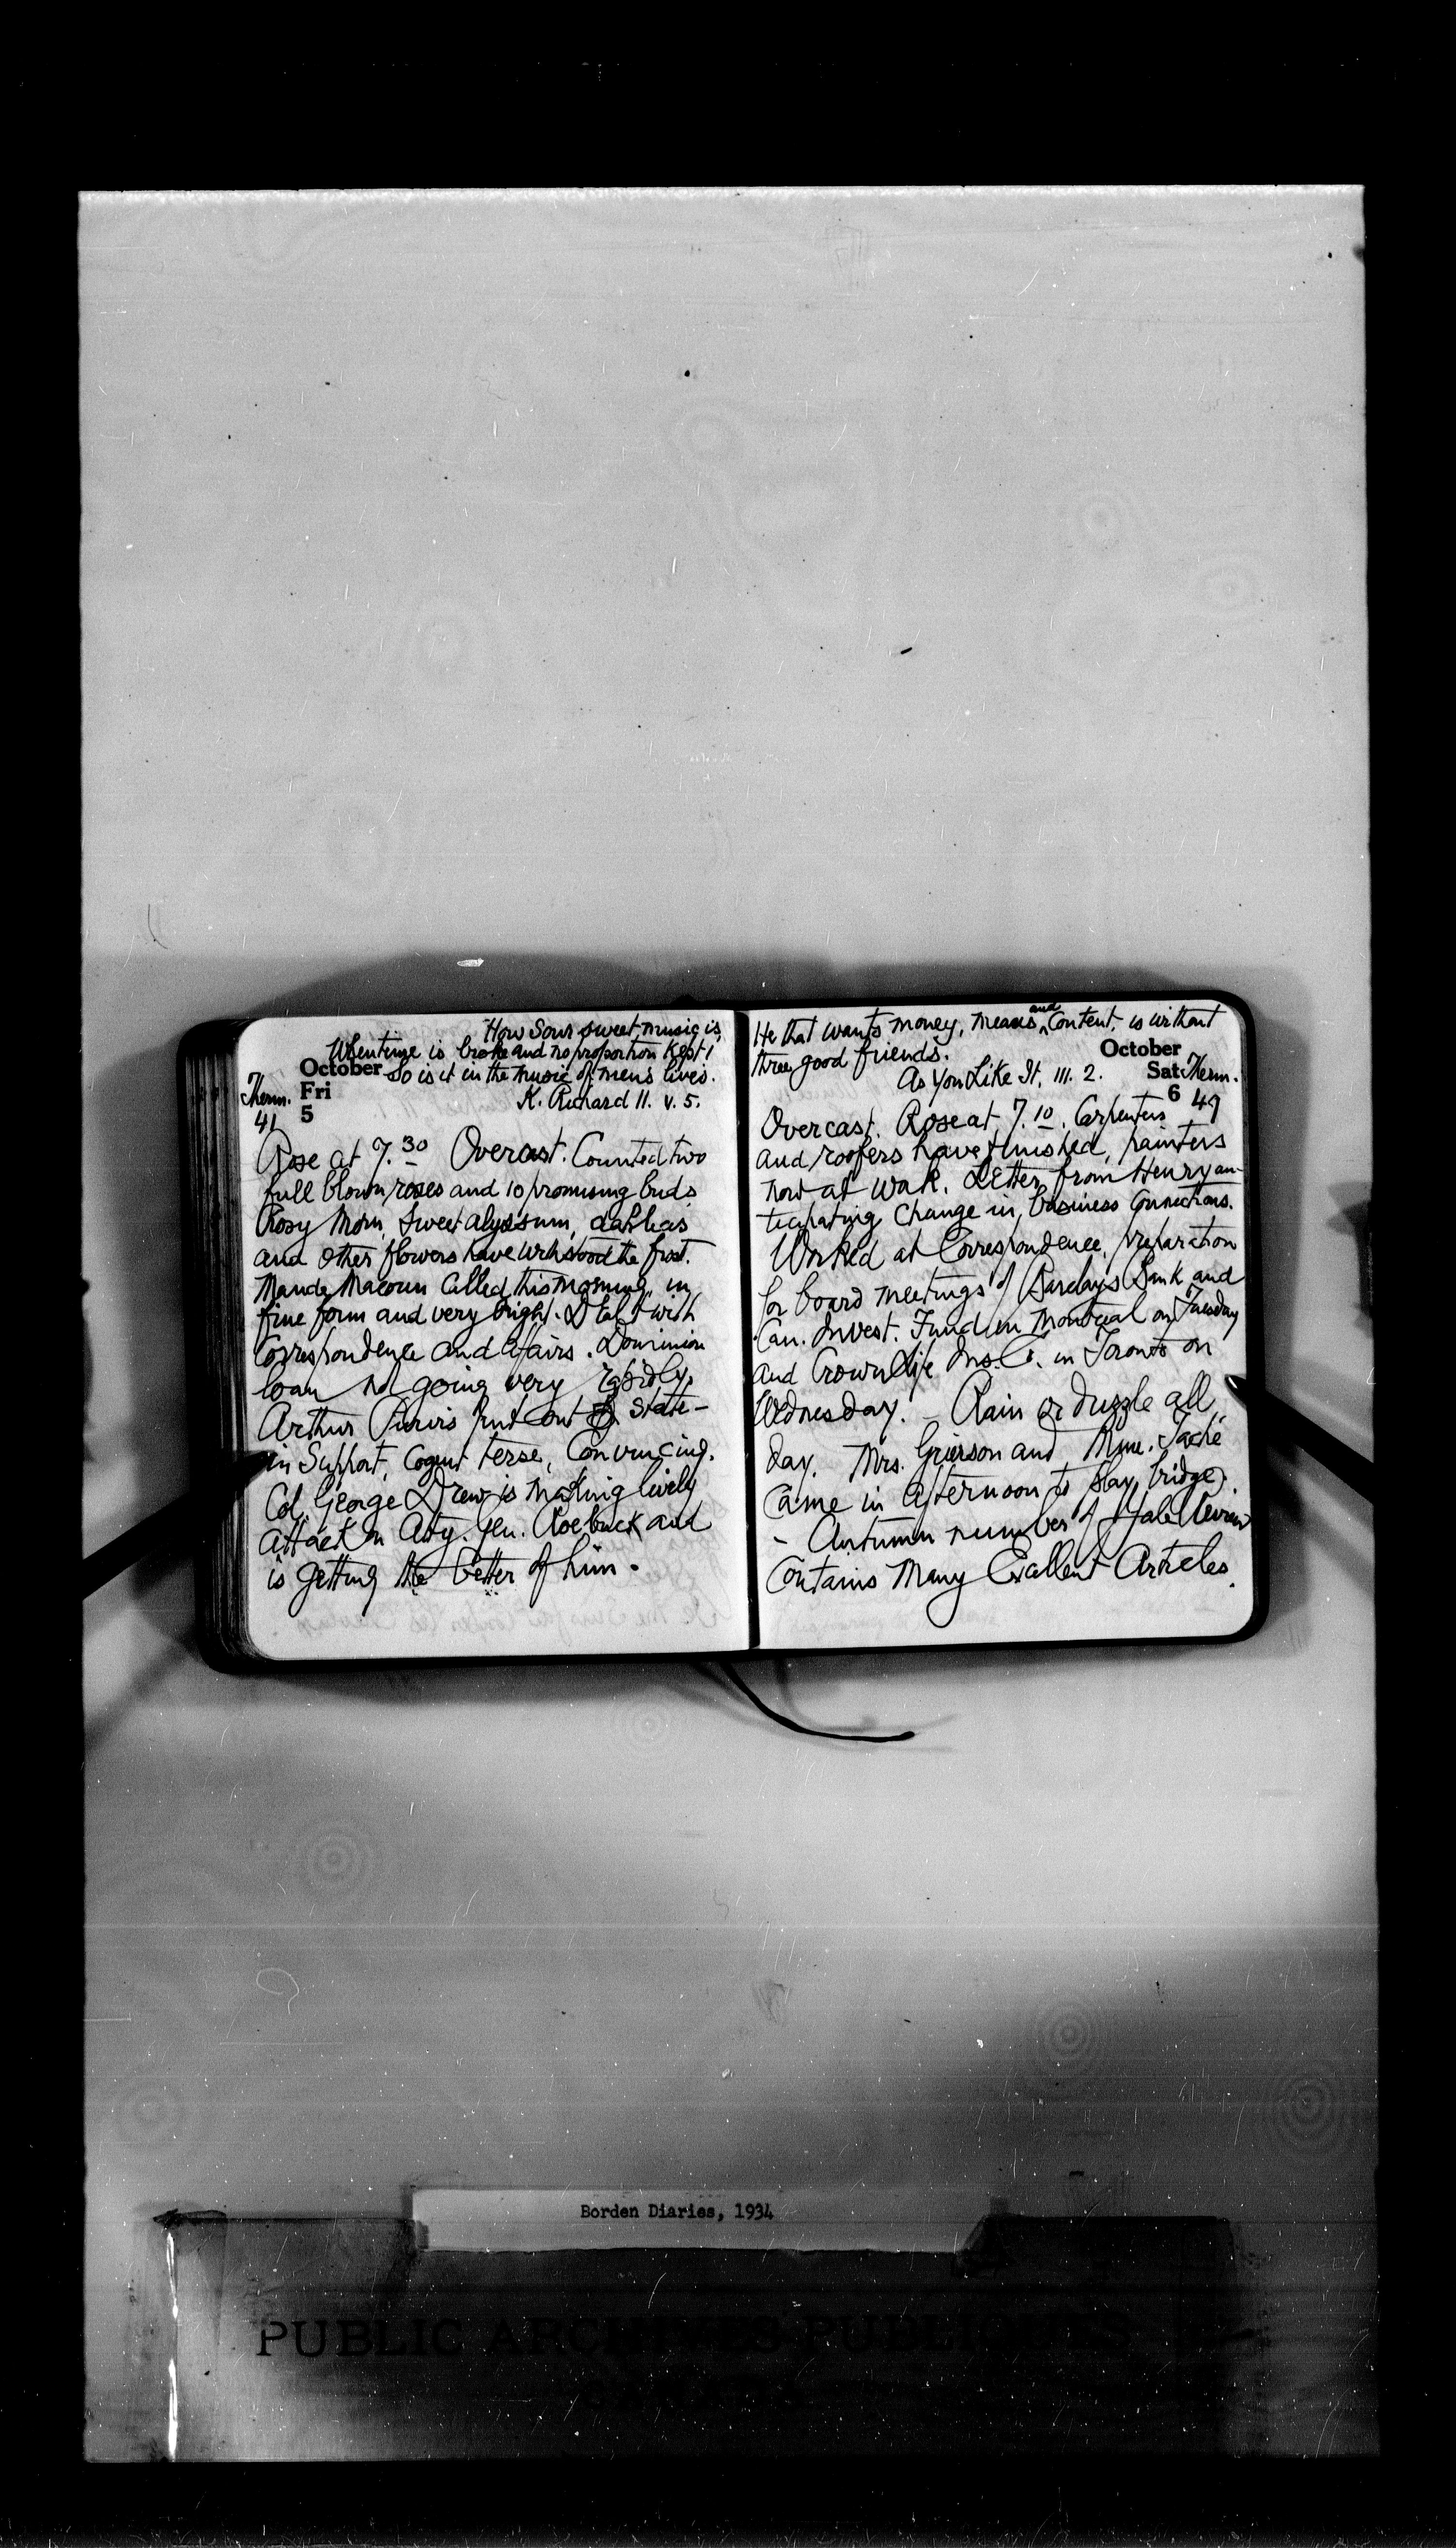 "How sour sweet music is,
When time is broke and no proportion kept!
So is it in the music of men's lives.
K. Richard II. v. 5.
October
Fri
5
Therm.
41
Rose at 7.30 Overcast. Counted two
full blown roses and 10 promising buds
Rosy Morn, Sweet alyssum, dahlias
and other flowers have withstood the frost.
Maude Macoun called this morning, in
fine form and very bright. Dealt with
Correspondence and affairs. Dominion
loan not going very rapidly.
Arthur Purvis put out state-
in support, cogent terse, convincing.
Col. George Drew is making lively
attack on Atty. Gen. Roebuck and
is getting the better of him.
He that wants money, means and content, is without
three good friends.
As You Like It. III. 2.
October
Sat
6
Therm.
47
Overcast. Rose at 7.10. Carpenters
and roofers have finished, painters
now at work. Letter from Henry an-
ticipating change in business connections.
Worked at Correspondence, preparation
for board meetings of Barclays Bank and
Can. Invest. Fund in Montreal on Tuesday
and Crown Life Ins. Co. in Toronto on
Wednesday. - Rain or drizzle all
day. Mrs. Grierson and Mme. Taché
came in afternoon to play bridge.
- Autumn number of Yale Review
contains many Excellent Articles.
Borden Diaries, 1934
PUBLIC ARCHIVES PUBLIQUES